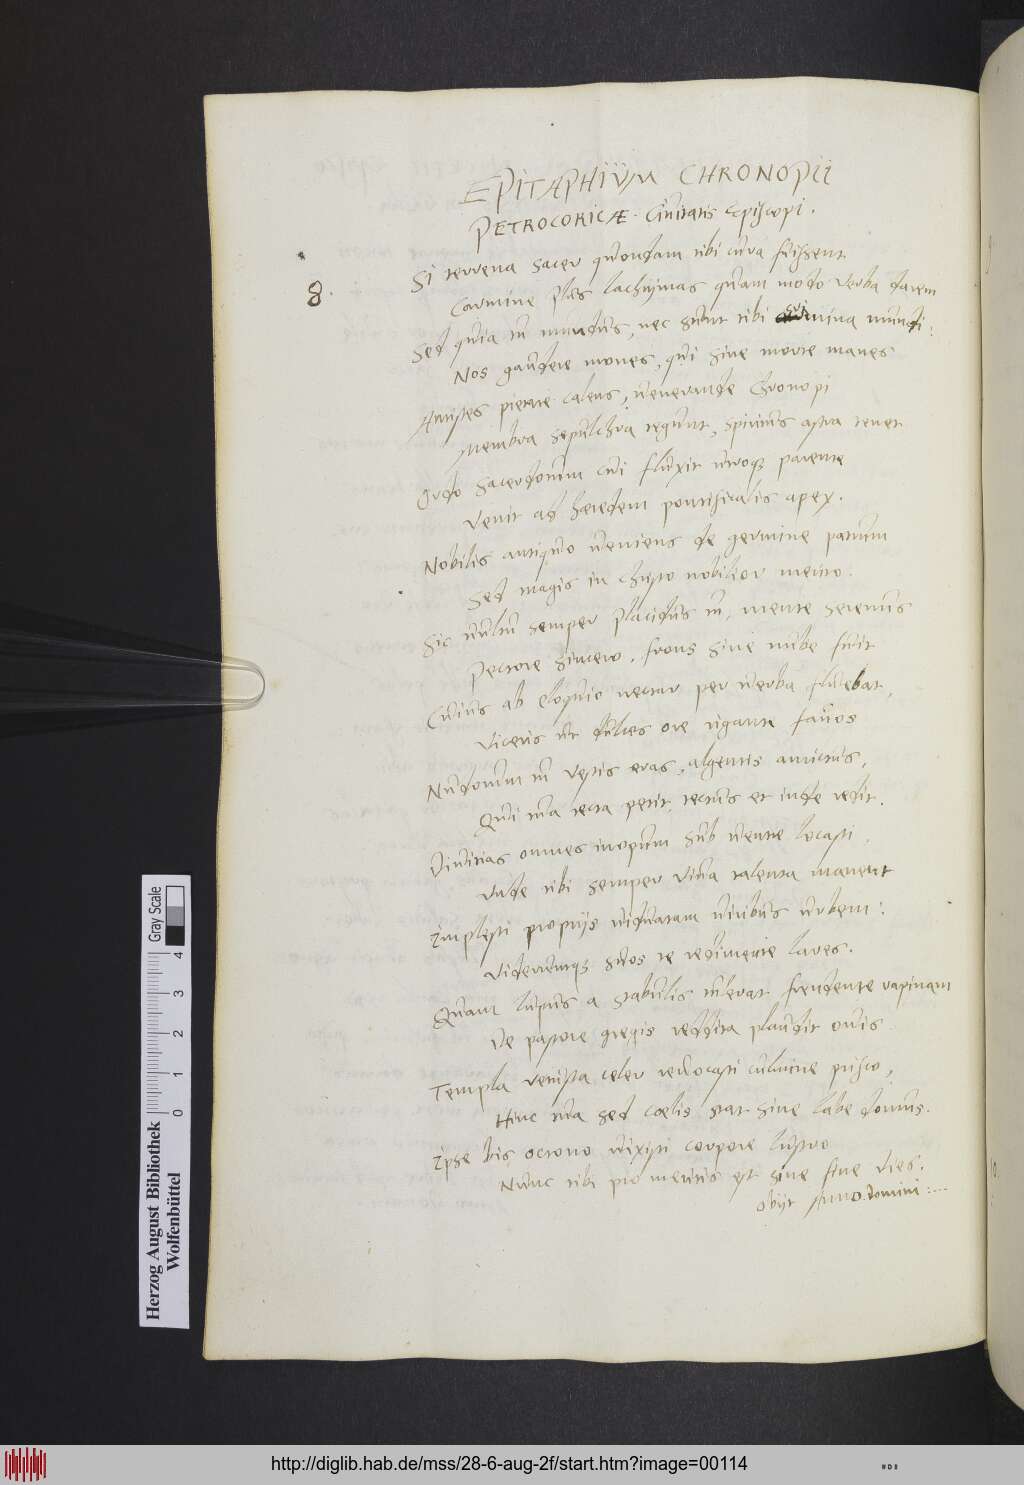 EPITAPHIUM CHRONOPII
PETROCORICÆ Civitatis Episcopi.
8.
Si terrena sacer quondam tibi cura fuissent
Carmine plus lachrymas quam modo verba darem
Sed quia tu mundus, nec sunt tibi crimina mundi:
Nos gaudere mones, qui sine morte manes
Antistes pietate calens, venerande Chronopi
Membra sepulchra tegunt, spiritus astra tenet
Ordo sacerdotum cui fluxit utroq; parente
Venit ad hæredem pontificalis apex.
Nobilis antiquo veniens de germine patrum
Sed magis in christo nobilior merito.
Sic vultu semper placidus tu, mente serenus
Pectore sincero, frons sine nube fuit
Cuius ab eloquio nectar per verba fluebat,
Viceris ut dulces ore riganti favos
Nudorum tu vestis eras, algentis amictus,
Qui tua tecta petit, tectus et inde redit.
Divitias omnes inopum sub ventre locasti,
Unde tibi semper viva talenta manent
Implesti proprijs viduatam civibus urbem:
Videruntq; suos te redimente lares.
Quam lupus a stabulis tulerat frendente rapinam
De pastore gregis reddita plaudit ovis.
Templa venusta celer revocasti culmine prisco,
Hinc tua sed cœlis stat sine labe domus.
Ipse bis octono vixisti corpore lustro
Nunc tibi pro meritis est sine fine dies.
Obijt Anno domini:....
Herzog August Bibliothek
Wolfenbüttel
Gray Scale
0 1 2 3 4
http://diglib.hab.de/mss/28-6-aug-2f/start.htm?image=00114